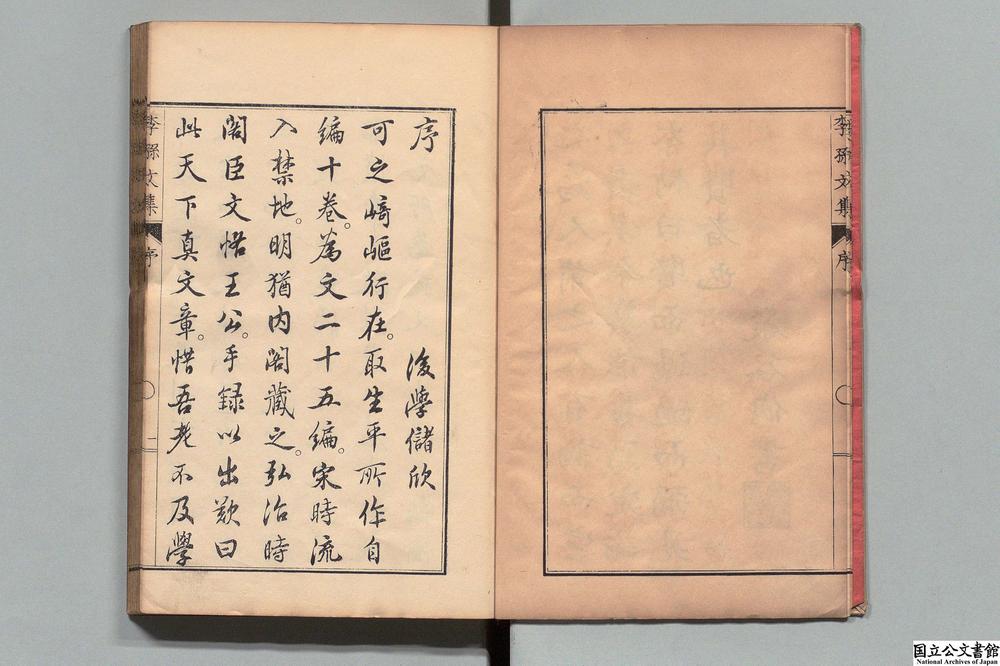 李孫文集
序
序
後學儲欣
可之﨑嶇行在。取生平所作自
編十卷。為文二十五編。宋時流
入禁地。明猶内閣藏之。弘治時
閣臣文恪王公。手録以出歎曰
此天下真文章。惜吾老不及學
李孫文集
序
一
国立公文書館
National Archives of Japan